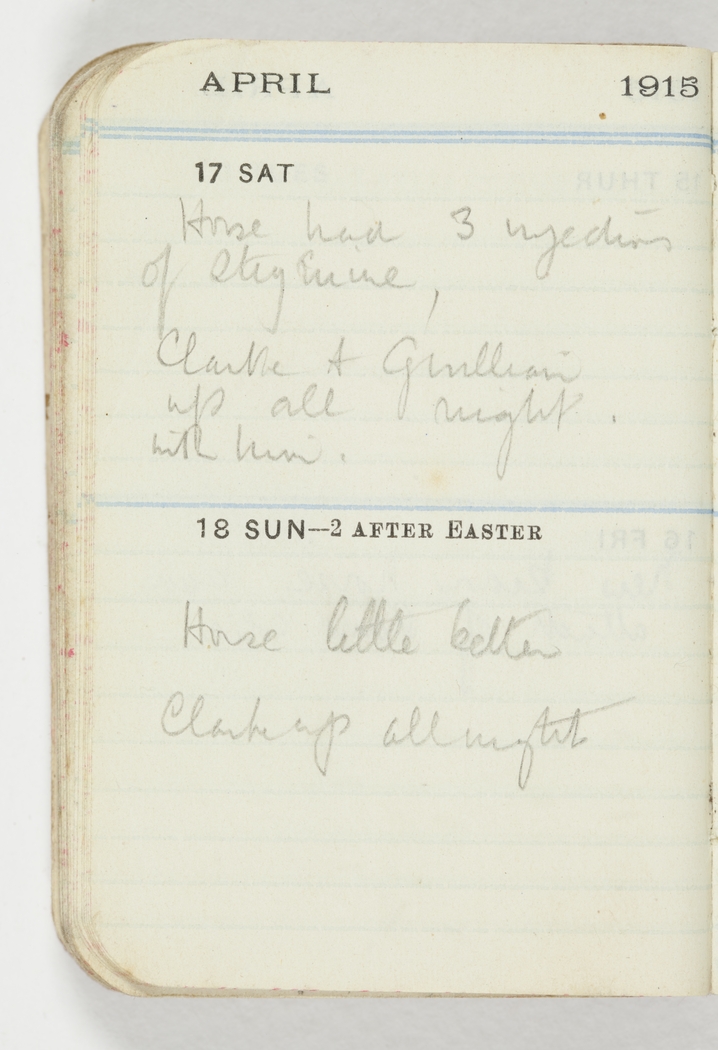 APRIL 1915
17 SAT
Horse had 3 injections
of
Clarke &
up all night.
with him.
18 SUN—2 AFTER EASTER
Horse little better
Clarke up all night